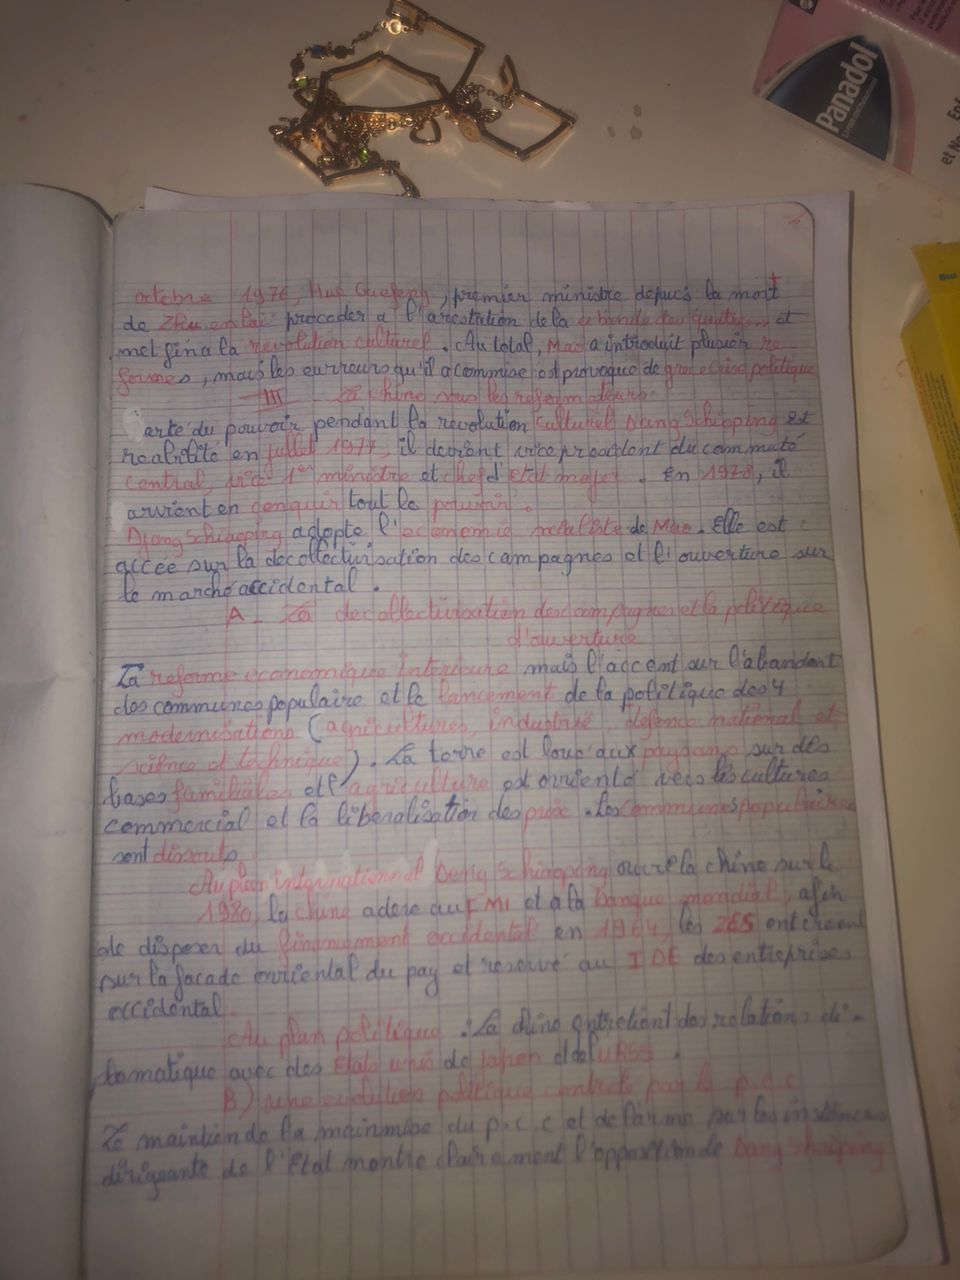 Panadol
Enf
et No
octobre 1976, Hua Guofeng, premier ministre depuis la mort
de Zhu en lai proceder a l'arestation de la « bande des quatre » et
met fin a la revolution culturel. Au total, Mao a introduit plusieur re
formes, mais les eurreurs qu'il a commise ost provoque de grave crise politique
III La chine sous les reformateurs
arté du pouvoir pendant la revolution culturel Dang Schipping est
realilité en juillet 1977, il devient vice president du commuté
central, vice 1er ministre et chef d'Etat major. En 1978, il
arvient en conquir tout le pouvoir.
Djang Schiaoping adopte l'economie de Mao. Elle est
accée sur la decollectivisation des campagnes et l'ouverture sur
le marché occidental.
A - La decollectivisation des campagnes et la politique
d'ouverture
La reforme economique interieure mais l'accent sur l'abandont
des communes populaire et le lancement de la politique des 4
modernisations (agricultures, industrie, defence national et
science et technique). La terre est loue aux paysans sur des
bases familiales et l'agriculture est oriente vers les cultures
commercial et la liberalisation des prix. Les communes populaire
sent dissouts
Au plan international Deng Schiaoping ouvre la chine sur le
1980, la chine adere au FMI et a la banque mondial, afin
de disposer du financement occidental en 1964, les ZES ont
sur la facade orriental du pay et reservé au IDE des entreprises
occidental.
Au plan politique : La chine entretient des relations di-
tomatique avec des Etats unis de Japon et de l'URSS.
B) une evolution politique controle par le p.c.c
Le maintien de la mainmise du p.c.c et de l'arme sur les instences
dirigeante de l'Etat montre clairement l'opposition de Dang Shaiping